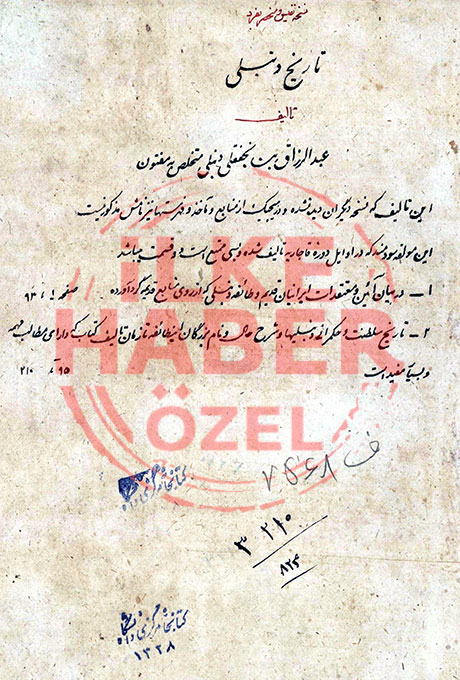 نسخه نفیس و منحصر بفرد
تاریخ دنبلی
تالیف
عبدالرزاق بیت نجفقلی دنبلی متخلص به مفتون
این تالیف که نسخه دیگر آن دیده نشده و در هیچیک از منابع و مآخذ و فهرستها نیز نامش مذکور نیست
این مولفه سودمند که در اوایل دوره قاجاریه تالیف شده و بسی ممتع است دو قسمت میباشد
۱ - در بیان آئین و معتقدات ایرانیان قدیم و طائفه دنبلی که از روی منابع قدیم گردآورده صفحه ۱ - ۹۴
۲ - تاریخ سلطنت و حکمرانی دنبلیها و شرح حال و نام بزرگان این طائفه تا زمان تالیف کتاب که دارای مطالب مهمه
و بسیار مفید است ۹۵ - ۲۱۰
İLKE
HABER
ÖZEL
ف ۷۵۶۸
کتابخانه مرکزی دانشگاه
۳ ۲۱۰
۸۲۴
کتابخانه مرکزی دانشگاه
۱۳۲۸